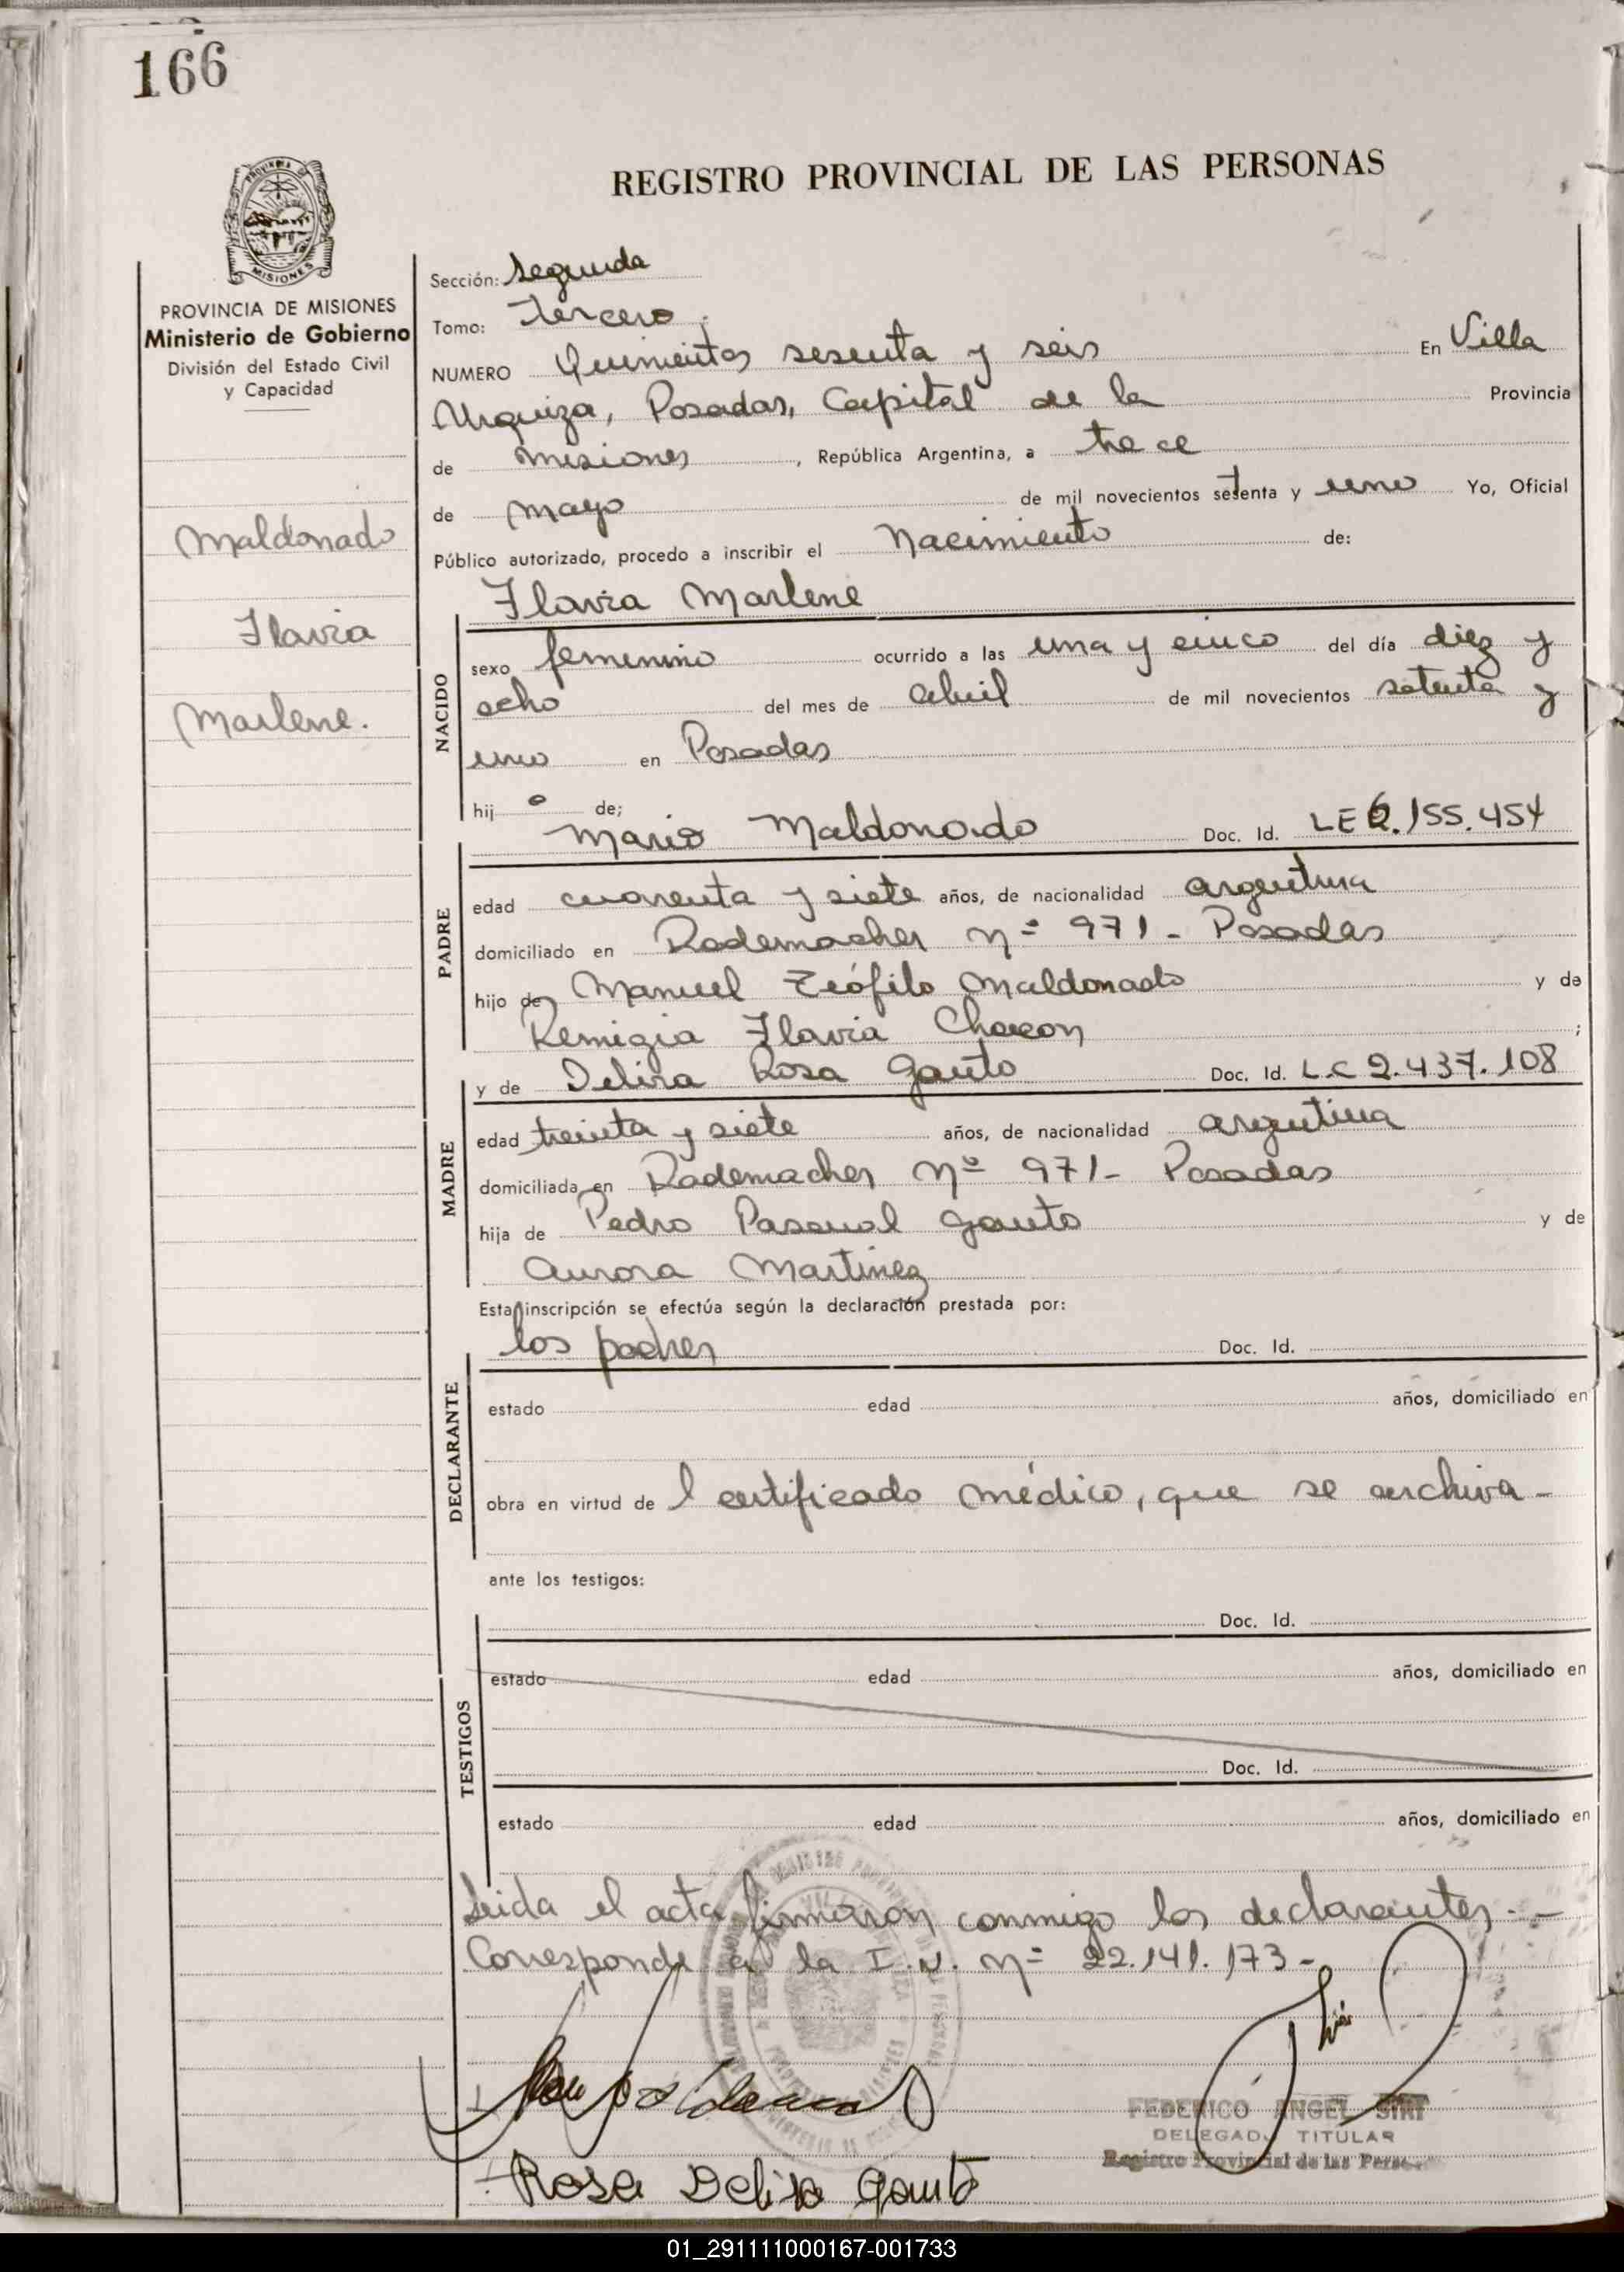 166
REGISTRO PROVINCIAL DE LAS PERSONAS
MISIONES
PROVINCIA DE MISIONES
Ministerio de Gobierno
División del Estado Civil
y Capacidad
Maldonado
Flavia
Marlene.
Sección: Segunda
Tomo: Tercero.
NUMERO Quinientos sesenta y seis En Villa
Urquiza, Posadas, Capital de la Provincia
de Misiones, República Argentina, a trece
de mayo de mil novecientos setenta y uno Yo, Oficial
Público autorizado, procedo a inscribir el Nacimiento de:
Flavia Marlene
NACIDO
sexo femenino ocurrido a las una y cinco del día diez y
ocho del mes de abril de mil novecientos setenta y
uno en Posadas
hij a de;
Mario Maldonado Doc. Id. LE 6.155.454
PADRE
edad cuarenta y siete años, de nacionalidad argentina
domiciliado en Rademacher Nº 971 - Posadas
hijo de Manuel Teófilo Maldonado y de
Remigia Flavia Chacon ;
y de Delira Rosa Gauto Doc. Id. L.C 2.437.108
MADRE
edad treinta y siete años, de nacionalidad argentina
domiciliada en Rademacher Nº 971- Posadas
hija de Pedro Pascual Gauto y de
Aurora Martinez
Esta inscripción se efectúa según la declaración prestada por:
los padres Doc. Id.
DECLARANTE
estado edad años, domiciliado en
obra en virtud de l certificado médico, que se archiva -
ante los testigos:
Doc. Id.
TESTIGOS
estado edad años, domiciliado en
Doc. Id.
estado edad años, domiciliado en
Leida el acta firmaron conmigo los declarantes.-
Corresponde a la I.N. Nº 22.141.173-
FEDERICO ANGEL SIRI
DELEGADO TITULAR
Registro Provincial de las Personas
Rosa Delira Gauto
01_291111000167-001733